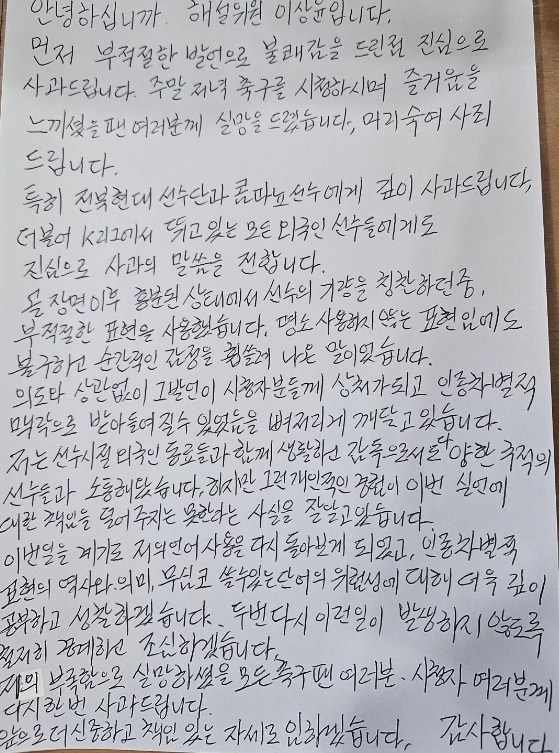 안녕하십니까. 해설위원 이상윤입니다.
먼저 부적절한 발언으로 불쾌감을 드린점 진심으로
사과드립니다. 주말 저녁 축구를 시청하시며 즐거움을
느끼셨을 팬 여러분께 실망을 드렸습니다, 머리숙여 사죄
드립니다.
특히 전북현대 선수단과 콤파뇨선수에게 깊이 사과드립니다,
더불어 K리그에서 뛰고 있는 모든 외국인 선수들에게도
진심으로 사과의 말씀을 전합니다.
골 장면이후 흥분된 상태에서 선수의 기량을 칭찬하던중,
부적절한 표현을 사용했습니다. 평소 사용하지 않는 표현임에도
불구하고 순간적인 감정을 휩쓸려 나온 말이었습니다.
의도와 상관없이 그발언이 시청자분들께 상처가되고 인종차별적
맥락으로 받아들여질수 있었음을 뼈저리게 깨닫고 있습니다.
저는 선수시절 외국인 동료들과 함께 생활하고 감독으로서도 다양한 국적의
선수들과 소통해왔습니다, 하지만 그런 개인적인 경험이 이번 실언에
대한 책임을 덜어 주지는 못한다는 사실을 잘알고 있습니다.
이번일을 계기로 저의언어 사용을 다시 돌아보게 되었고, 인종차별적
표현의 역사와 의미, 무심코 쓸수있는단어의 위험성에 대해 더욱 깊이
공부하고 성찰하겠습니다. 두번다시 이런일이 발생하지 않도록
철저히 경계하고 조심하겠습니다,
저의 부족함으로 실망하셨을 모든 축구 팬 여러분. 시청자 여러분께
다시한번 사과드립니다.
앞으로 더 신중하고 책임 있는 자세로 임하겠습니다, 감사합니다